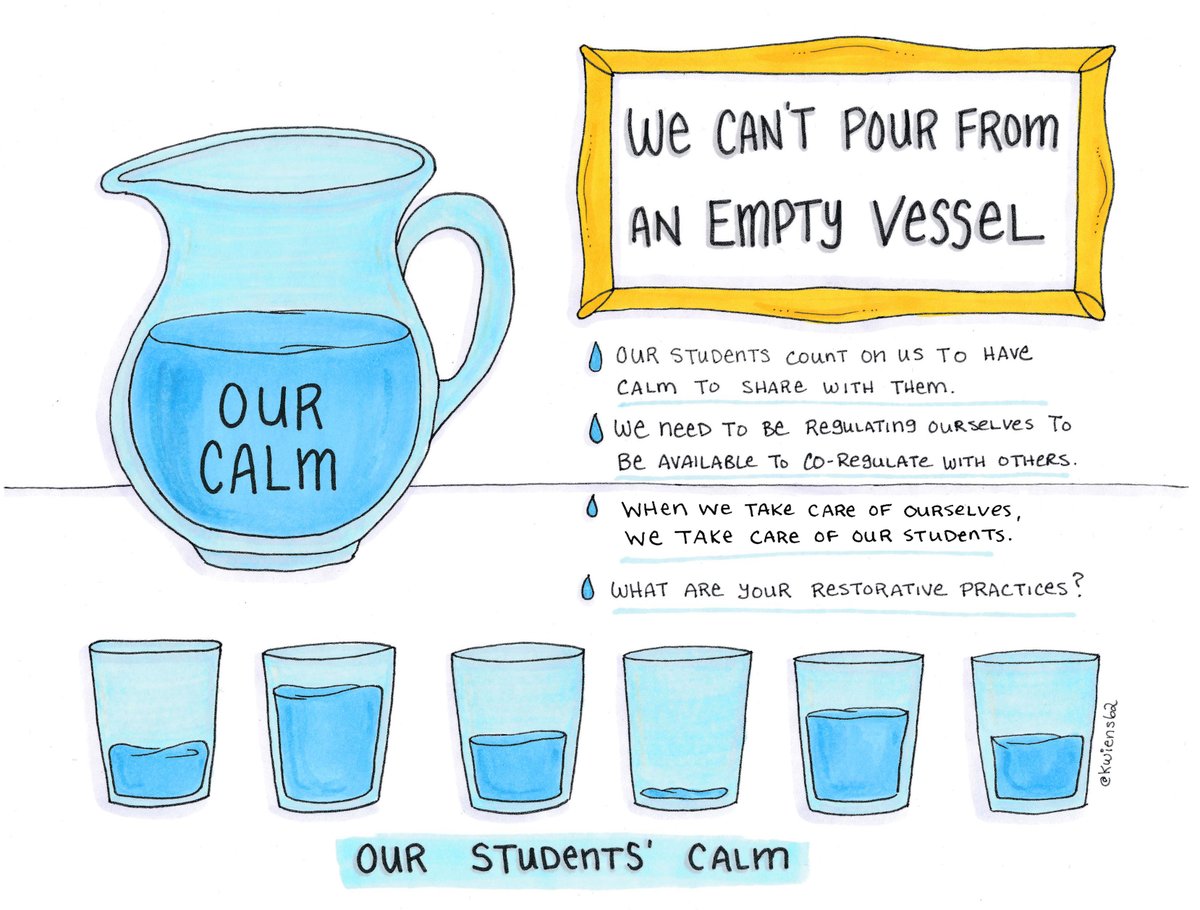 WE CAN'T POUR FROM
AN EMPTY VESSEL
OUR
CALM
OUR STUDENTS COUNT ON US TO HAVE
CALM TO SHARE WITH THEM.
WE NEED TO BE REGULATING OURSELVES TO
BE AVAILABLE TO CO-REGULATE WITH OTHERS.
WHEN WE TAKE CARE OF OURSELVES,
WE TAKE CARE OF OUR STUDENTS.
WHAT ARE YOUR RESTORATIVE PRACTICES?
@kwiens62
OUR STUDENTS' CALM